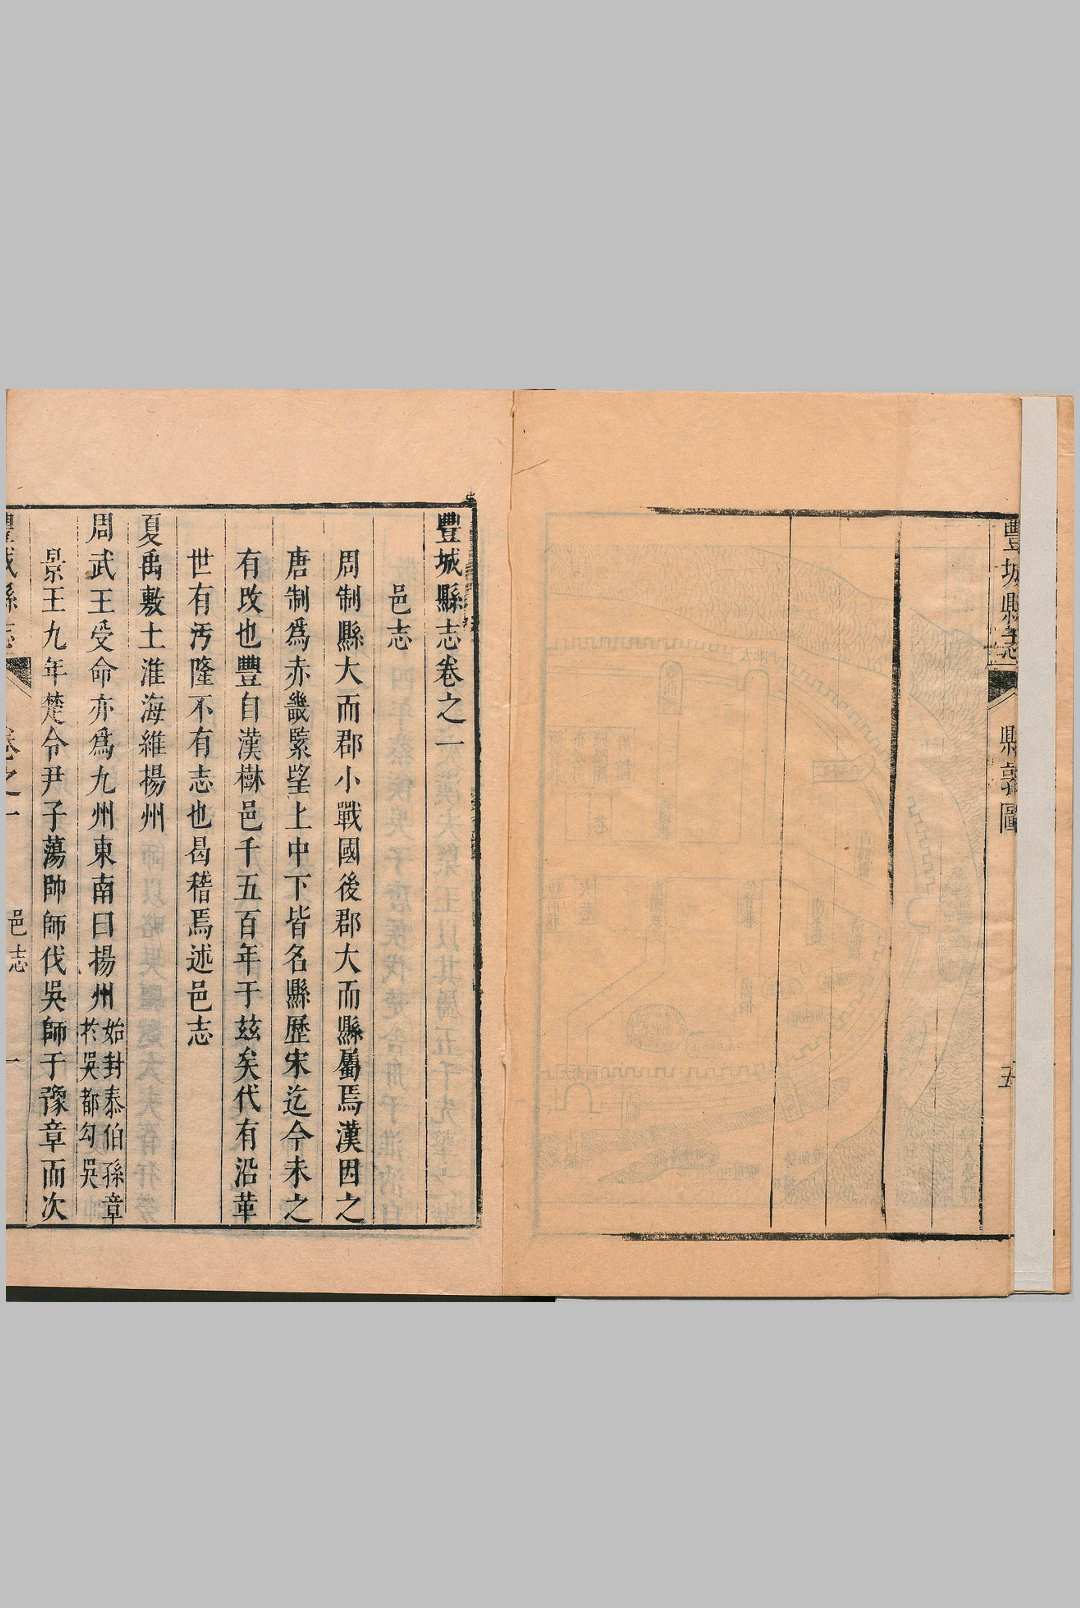 豐城縣志
縣郭圖
五
豐城縣志卷之一
邑志
周制縣大而郡小戰國後郡大而縣屬焉漢因之
唐制爲赤畿緊望上中下皆名縣歷宋迄今未之
有攺也豐自漢樹邑千五百年于兹矣代有沿革
世有汚隆不有志也曷稽焉述邑志
夏禹敷土淮海維揚州
周武王受命亦爲九州東南曰揚州始封泰伯孫章
於吳都勾吳
景王九年楚令尹子蕩帥師伐吳師于豫章而次
豐城縣志
卷之一
邑志
一